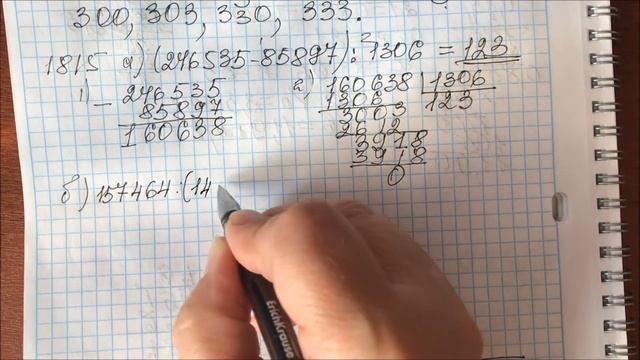 300, 303, 330, 333.
1815 а) (246535-85897):1306 = 123
1) 246535
- 85897
160638
2) 160638 | 1306
1306 123
3003
2612
3918
3918
0
б) 157464:(14
ErichKrause